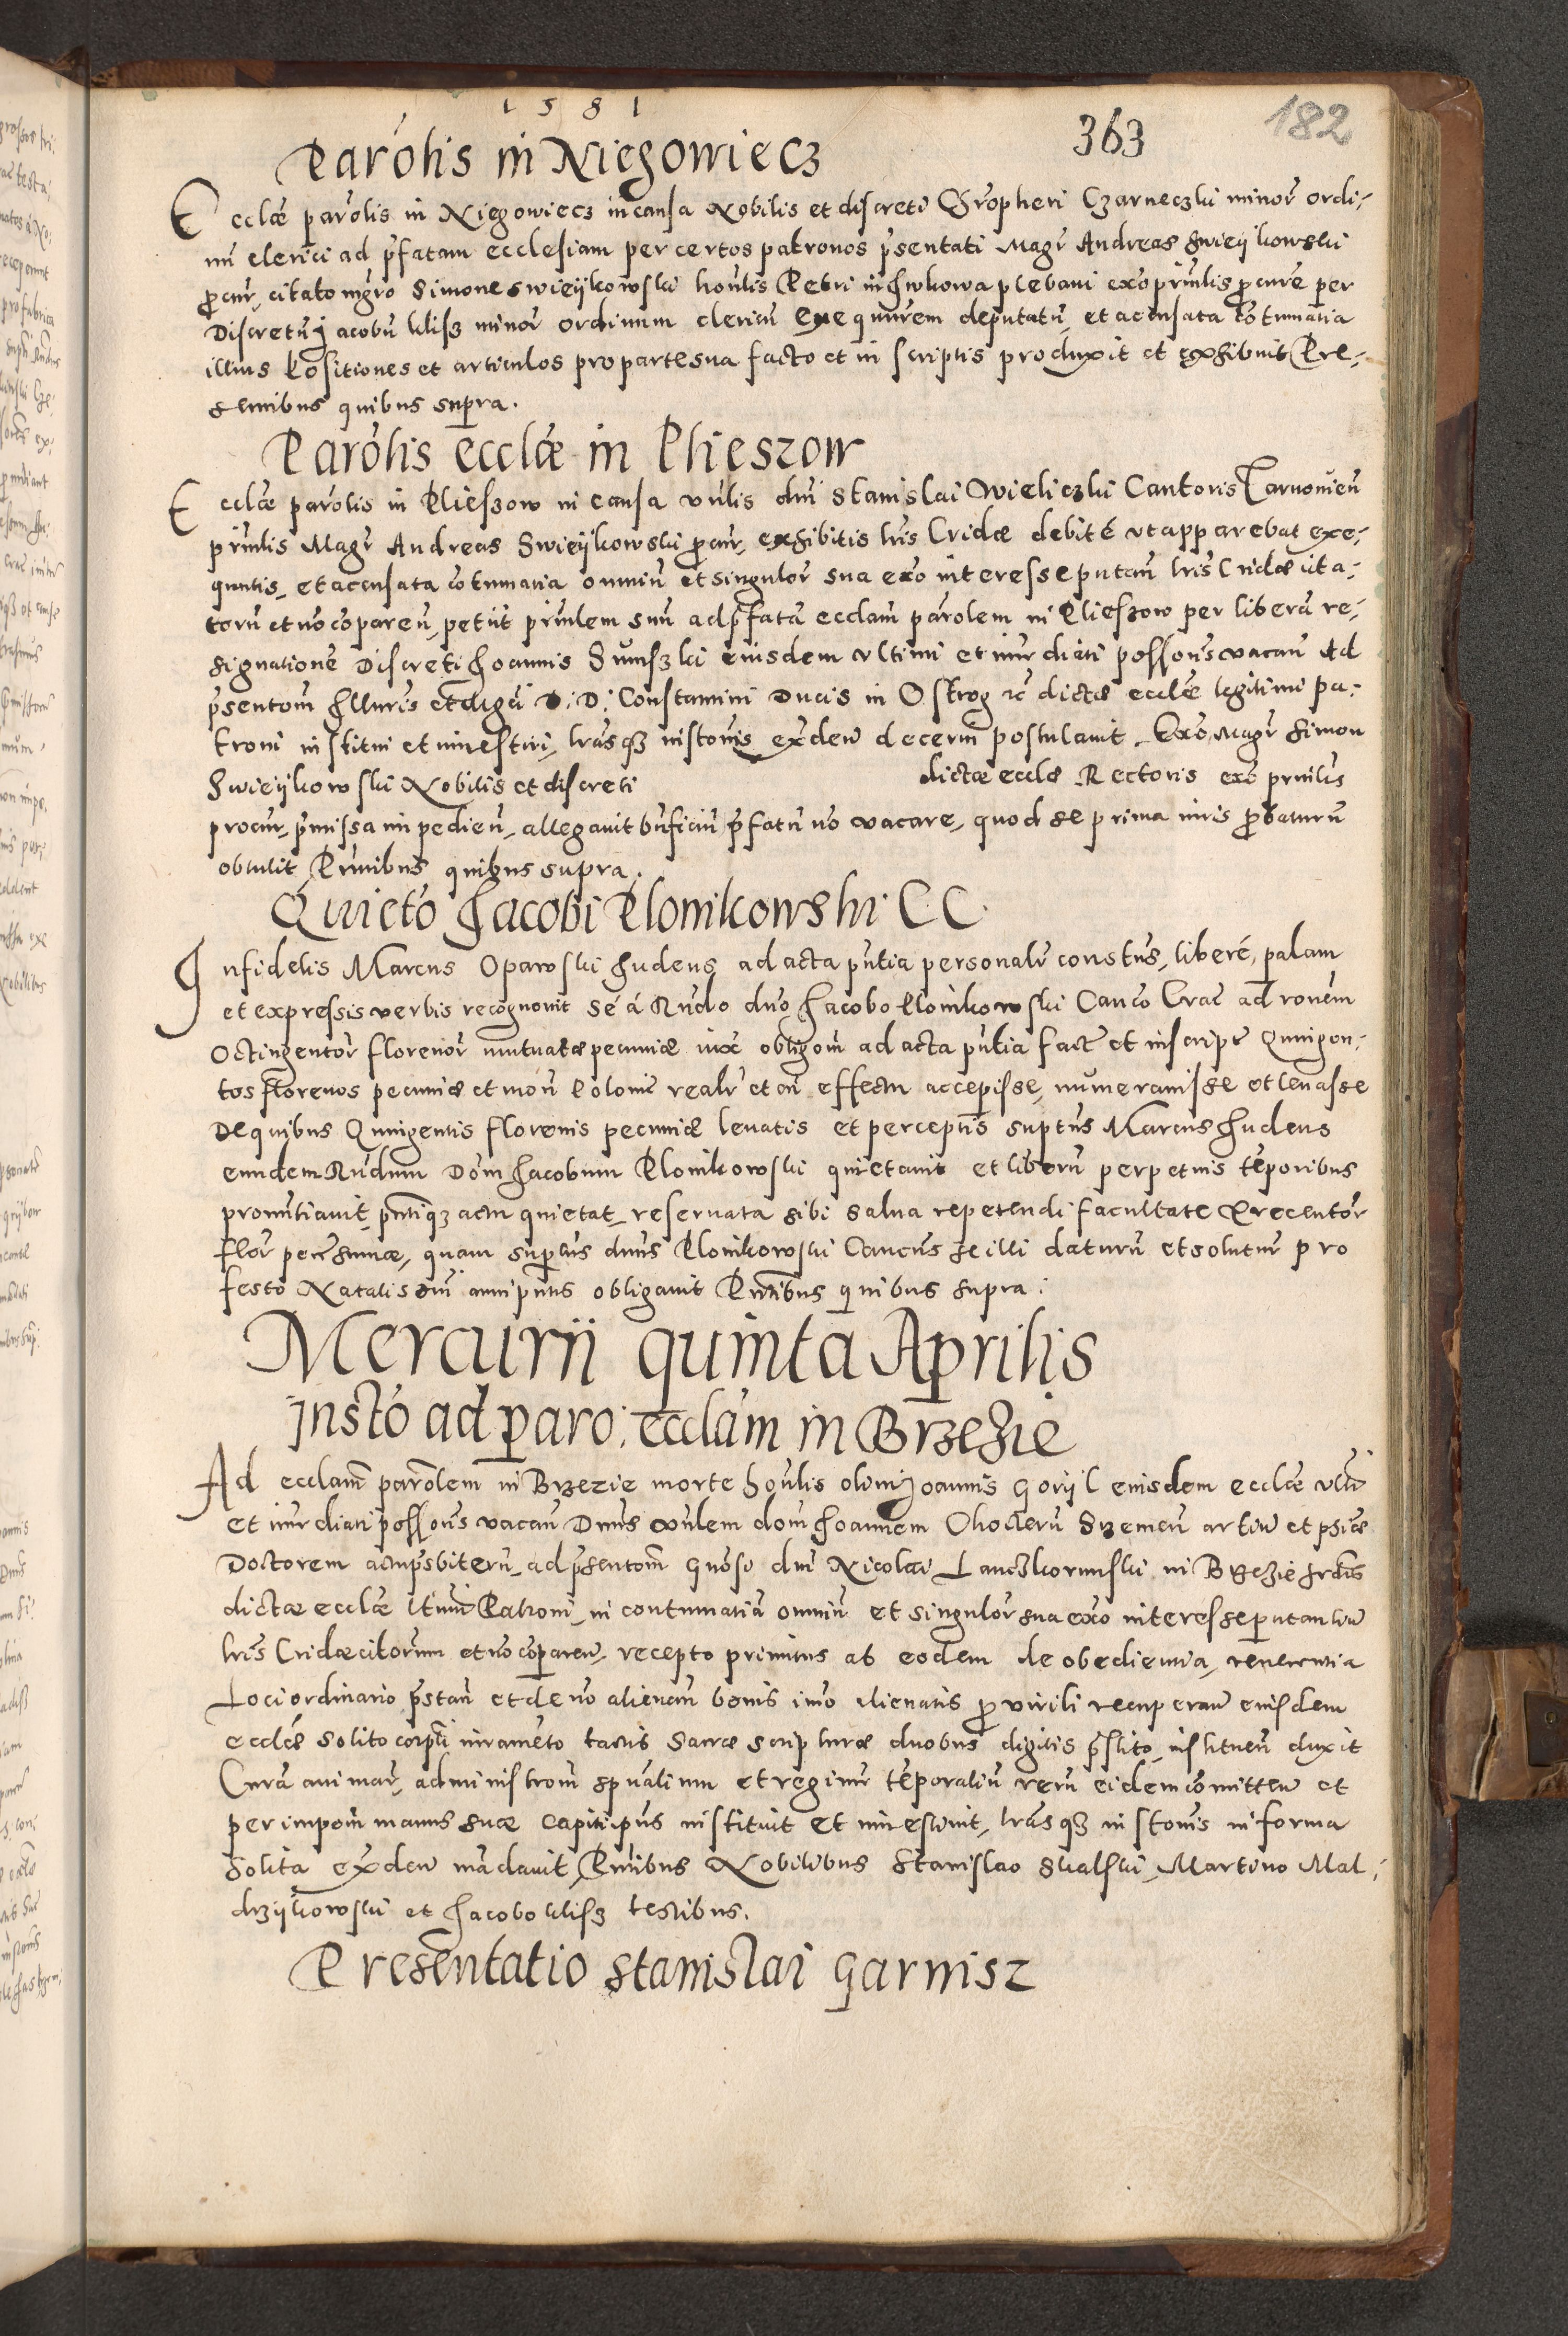 1581
363
182
Parolis in Niegowiecz
Ecclæ parolis in Niegowiecz in causa Nobilis et discreti Chrõpheri Czarneczki minor ordi-
nũ clerici ad pfatam ecclesiam per certos patronos psentati Magr Andreas Swieijkowski
procur, citato mgro Simone Swieijkowski honlis Petri in plebani exo prinlis procure per
Discretũ Jacobũ Klisz minor ordinum clericũ exequurem deputatũ, et accusata cõtumatia
illius Positiones et articulos pro parte sua facto et in scriptis produxit et exhibuit Pre-
sentibus quibus supra.
Parolis ecclæ in Plieszow
Ecclæ parolis in Plieszow in causa vnlis dni Stanislai Wieliczki Cantoris Tarnovien
prinlis Magr Andreas Swieijkowski procur, exhibitis lris Cridæ debitè vt apparebat exe-
quutis, et accusata cõtumatia omniũ et singulor sua exo interesse putan lris Cridæ cita-
torũ et nõ cõparen, petiit prinlem suũ ad pfatã ecclam parolem in Plieszow per liberã re-
signationẽ Discreti Joannis eiusdem vltimi et imrdiati possoris vacan Ad
psentom Illuris et D: D: Constantini Ducis in Ostrog &c dictæ ecclæ legitimi pa-
troni institui et inuestiri, lrasqz instonis exden decerni postulauit. Exo Magr Simon
Swieijkowski Nobilis et discreti dictæ ecclæ Rectoris exo prinlis
procur, pmissa impedien, allegauit bnficiũ pfatũ nõ vacare, quod se prima iuris probaturũ
obtulit Pntibus quibus supra.
Quieto Jacobi Plonikowski C C
Infidelis Marcus Oparowski Judeus ad acta pntia personalr constus, liberè, palam
et expressis verbis recognouit Sè à Rndo dno Jacobo Plonikowski Canco Crac ad ronem
Octingentor florenor mutuatæ pecuniæ iux obligom ad acta pntia fact et inscript Quingen-
tos florenos pecuniæ et mon Polonic realr et cũ effectu accepisse, numerauisse et leuasse
De quibus Quingentis florenis pecuniæ leuatis et perceptis suptus Marcus Judeus
eundem Rndum Dom Jacobum Plonikowski quietauit et liberũ perpetuis tẽporibus
pronũtiauit, pntiqz actu quietat, reseruata sibi salua repetendi facultate Trecentor
flor pecæ summæ, quam supctus dnus Plonikowski Cancus se illi daturũ et solutur pro
festo Natalis dni anni pntis obligauit Pntibus quibus supra:
Mercurii quinta Aprilis
Insto ad paro: ecclam in Brzezie
Ad ecclam parolem in Brzezie morte honlis olim Joannis Gorijl eiusdem ecclæ vlti
et imrdiati possoris vacan Dnus vnlem dom Joannem artiũ et
Doctorem ad psentom Gnosi dni Nicolai Lanczkorunski in Brzezie
dictæ ecclæ ltimi Patroni, in contumatiã omniũ et singulor sua exo interesse putantiũ
lris Cridæ citorum et nõ cõparen, recepto primitus ab eodem de obedientia, reuerentia
Loci ordinario pstan et de nõ alienan bonis imo alienatis pro virili recuperan eiusdem
ecclæ solito corpli iuramẽto tactis Sacræ scripturæ duobus digitis pstito, instituen duxit
Curã animar, administrom spualium et regimẽ tẽporaliũ rerũ eidem cõmitten et
per impom manus suæ capiti ipsius instituit et inuestiuit, lrasqz instonis in forma
Solita exden mãdauit, Pntibus Nobilibus Stanislao Skalski, Martino Mal-
drzijkowski et Jacobo Klisz testibus.
Presentatio Stanislai Garnisz